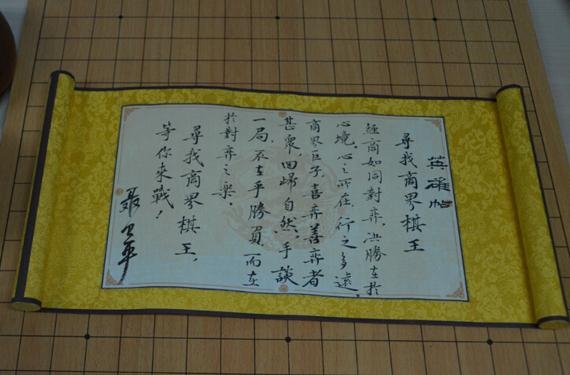 英雄帖
尋找商界棋王
經商如同對弈,决勝在於
心境,心之所在,行之多遠,
商界巨子,喜弈善弈者
甚衆,回歸自然,手談
一局,不在乎勝負,而在
於對弈之樂。
尋找商界棋王,
等你來戰!
聂卫平